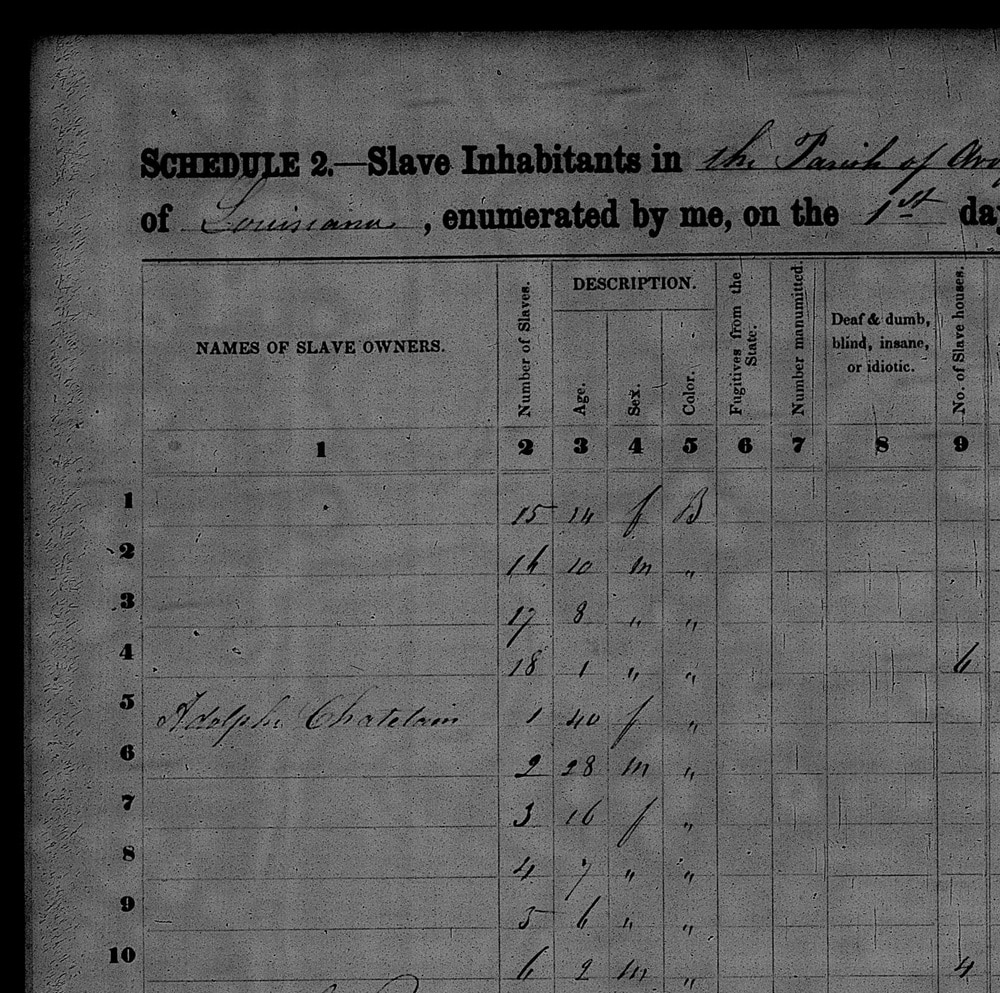 SCHEDULE 2.—Slave Inhabitants in the Parish of
of Louisiana, enumerated by me, on the 1st
NAMES OF SLAVE OWNERS. Number of Slaves. DESCRIPTION. Age. Sex. Color. Fugitives from the State. Number manumitted. Deaf & dumb, blind, insane, or idiotic. No. of Slave houses.
1 2 3 4 5 6 7 8 9
1 15 14 f B
2 16 10 m "
3 17 8 " "
4 18 1 " " 6
5 Adolphe Chatelain 1 40 f "
6 2 28 m "
7 3 16 f "
8 4 7 " "
9 5 6 " "
10 6 2 m " 4